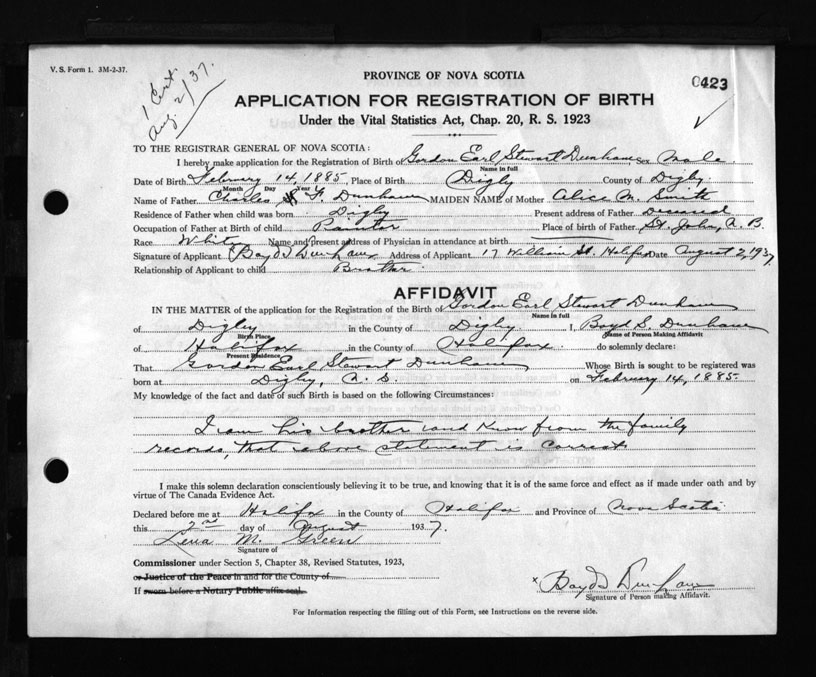 V. S. Form 1. 3M-2-37.
1 Cert.
Aug. 2/37.
PROVINCE OF NOVA SCOTIA
0423
APPLICATION FOR REGISTRATION OF BIRTH
Under the Vital Statistics Act, Chap. 20, R. S. 1923
TO THE REGISTRAR GENERAL OF NOVA SCOTIA:
I hereby make application for the Registration of Birth of Gordon Earl Stewart Dunham Sex Male
Name in full
Date of Birth February 14, 1885, Place of Birth Digby County of Digby
Month Day Year
Name of Father Charles F. Dunham MAIDEN NAME of Mother Alice M. Smith
Residence of Father when child was born Digby Present address of Father Deceased
Occupation of Father at Birth of child Painter Place of birth of Father St. John, N. B.
Race White Name and present address of Physician in attendance at birth
Signature of Applicant Boyd Dunham Address of Applicant 17 William St. Halifax Date August 2, 1937
Relationship of Applicant to child Brother
AFFIDAVIT
IN THE MATTER of the application for the Registration of the Birth of Gordon Earl Stewart Dunham
Name in full
of Digby in the County of Digby I, Boyd S. Dunham
Birth Place Name of Person Making Affidavit
of Halifax in the County of Halifax do solemnly declare:
Present Residence
That Gordon Earl Stewart Dunham Whose Birth is sought to be registered was
born at Digby, N. S. on February 14, 1885.
My knowledge of the fact and date of such Birth is based on the following Circumstances:
I am his brother and know from the family
records, that above statement is correct
I make this solemn declaration conscientiously believing it to be true, and knowing that it is of the same force and effect as if made under oath and by
virtue of The Canada Evidence Act.
Declared before me at Halifax in the County of Halifax and Province of Nova Scotia
this 2nd day of August 1937.
Lena M. Green
Signature of
Commissioner under Section 5, Chapter 38, Revised Statutes, 1923,
or Justice of the Peace in and for the County of
If sworn before a Notary Public affix seal.
x Boyd Dunham
Signature of Person making Affidavit.
For Information respecting the filling out of this Form, see Instructions on the reverse side.